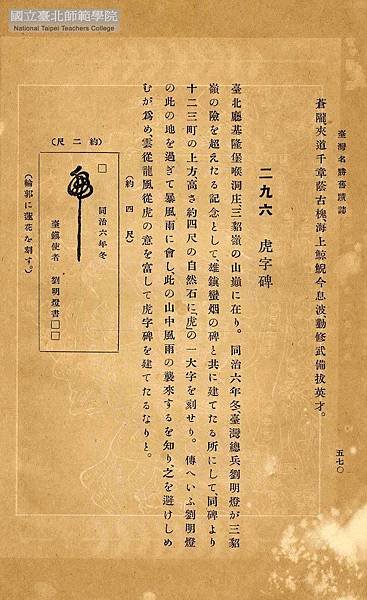 國立臺北師範學院
National Taipei Teachers College
臺灣名勝舊蹟誌
五七〇
蒼隴夾道千章蔭古槐、海上鯨鯢今息波、勸修武備拔英才。
二九六 虎字碑
臺北廳基隆堡㗋洞庄三貂嶺の山巓に在り。同治六年冬、臺灣總兵劉明燈が三貂
嶺の險を超えたる記念として、雄鎭蠻烟の碑と共に建てたる所にして、同碑より
十二三町の上方高さ約四尺の自然石に、「虎」の一大字を刻せり。傳へいふ劉明燈
の此の地を過ぎて暴風雨に會し、此の山中風雨の襲來するを知り、之を避けしめ
むが爲め、雲從龍風從虎の意を寓して虎字碑を建てたるなりと。
(約四尺)
(約二尺)
□
虎
同治六年冬
臺鎭使者 劉明燈書□□
(輪郭に蓮花を刻す。)